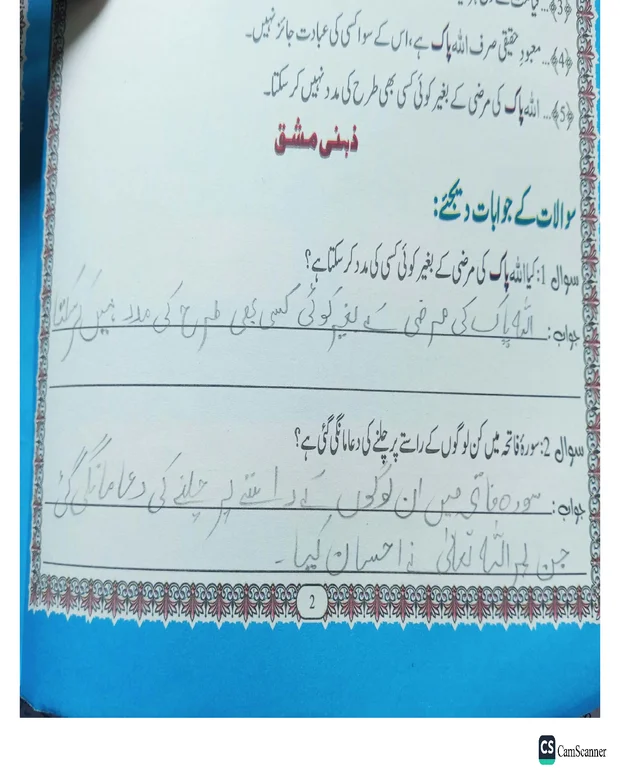 ﴿3﴾...
﴿4﴾... معبودِ حقیقی صرف اللہ پاک ہے، اس کے سوا کسی کی عبادت جائز نہیں۔
﴿5﴾... اللہ پاک کی مرضی کے بغیر کوئی کسی بھی طرح کی مدد نہیں کر سکتا۔
ذہنی مشق
سوالات کے جوابات دیجئے:
سوال 1: کیا اللہ پاک کی مرضی کے بغیر کوئی کسی کی مدد کر سکتا ہے؟
جواب: اللہ پاک کی مرضی کے بغیر کوئی کسی بھی طرح کی مدد نہیں کر سکتا
سوال 2: سورۂ فاتحہ میں کن لوگوں کے راستے پر چلنے کی دعا مانگی گئی ہے؟
جواب: سورہ فاتحہ میں ان لوگوں کے راستے پر چلنے کی دعا مانگی گئی
جن پر اللہ تعالیٰ نے احسان کیا۔
2
CS CamScanner